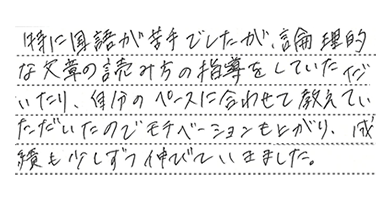 特に国語が苦手でしたが、論理的
な文章の読み方の指導をしていただ
いたり、自分のペースに合わせて教えてい
ただいたのでモチベーションも上がり、成
績も少しずつ伸びていきました。